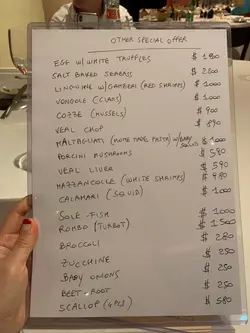 OTHER SPECIAL OFFER
EGG W/ WHITE TRUFFLES $ 190
SALT BAKED SEABASS $ 200
LINGUINE W/ GAMBERI (RED SHRIMPS) $ 1000
VONGOLE (CLAMS) $ 1000
COZZE (MUSSELS) $ 900
VEAL CHOP $ 890
MALTAGLIATI (HOME MADE PASTA) W/ BABY SQUID $ 1000
PORCINI MUSHROOMS $ 590
VEAL LIVER $ 590
MAZZANCOLLE (WHITE SHRIMPS) $ 980
CALAMARI (SQUID) $ 1000
SOLE FISH $ 1000
ROMBO (TURBOT) $ 1500
BROCCOLI $ 280
ZUCCHINE $ 250
BABY ONIONS $ 250
BEET ROOT $ 250
SCALLOP (4PCS) $ 580